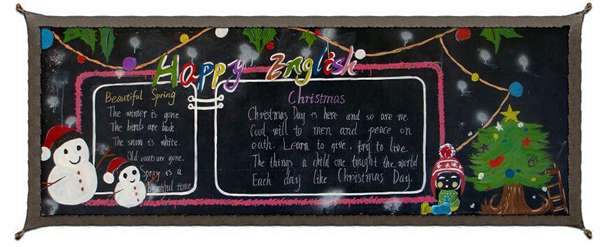 Happy English
Beautiful Spring
The winter is gone
The birds are back
The snow is white
Old coats are gone.
is a
time
Christmas
Christmas Day is here and so are we
Good will to men and peace on
eath. Learn to give, try to live.
The things a child one tought the world
Each day like Christmas Day.